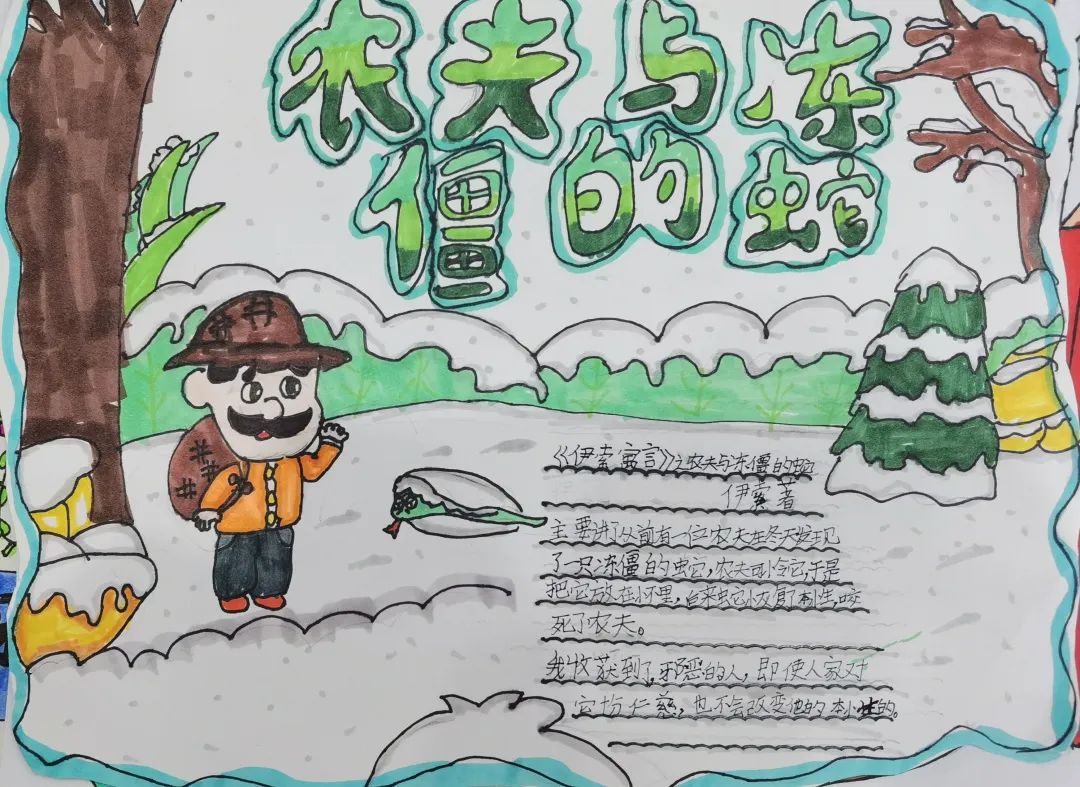 农夫与冻
僵的蛇
《伊索寓言》之农夫与冻僵的蛇
伊索 著
主要讲了从前有一位农夫在冬天发现
了一只冻僵的蛇,农夫可怜它,于是
把它放在怀里,后来蛇恢复了本性,咬
死了农夫。
我收获到了,邪恶的人,即使人家对
它均仁慈,也不会改变他的本性的。